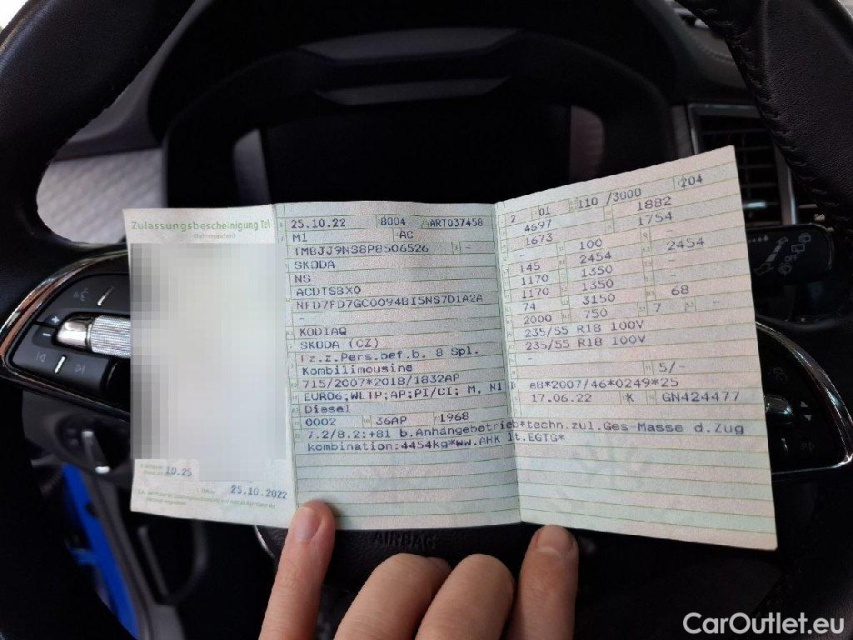 Zulassungsbescheinigung Teil
10.25
25.10.2022
25.10.22 8004 ART037458
M1 AC
TMBJJ9NS8P8506526 -
SKODA
NS
ACDTSBX0
NFD7FD7GC00948ISNS7D1A2A
-
KODIAQ
SKODA (CZ)
Fz.z.Pers.bef.b. 8 Spl.
Kombilimousine
715/2007*2018/1832AP
EURO6,WLTP;AP;PI/CI; M, N1
Diesel
0002 36AP 1968
7.2/8.2:+81 b.Anhängebetrieb*techn.zul.Ges-Masse d.Zug
kombination:4454kg*ww.AHK lt.EGTG*
2 01 110 /3000 204
4697 1882
1673 1754
100
145 2454 2454
1170 1350
1170 1350
74 3150 68
2000 750 7 -
235/55 R18 100V
235/55 R18 100V
-
5/-
AU*2007/46*0249*25
17.06.22 K GN424477
AIRBAG
CarOutlet.eu